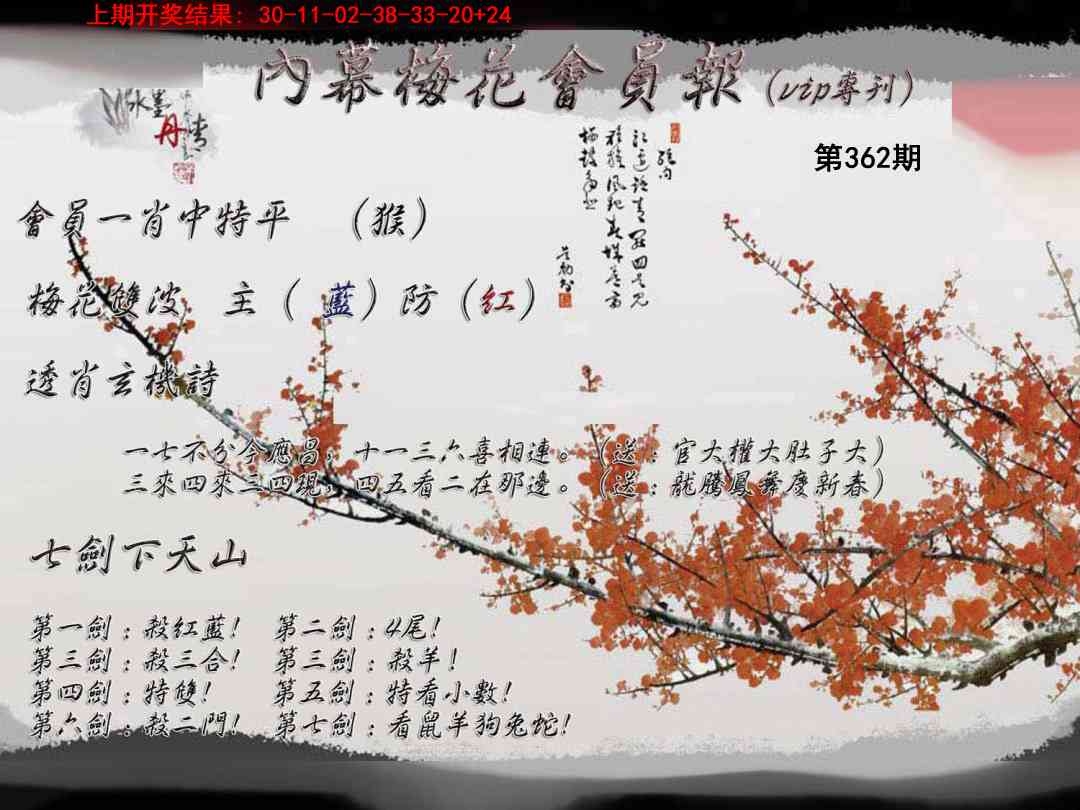 上期开奖结果: 30-11-02-38-33-20+24
內幕梅花會員報(vip專刊)
水墨
丹青
第362期
會員一肖中特平 (猴)
梅花雙波 主(藍)防(紅)
透肖玄機詩
一七不分今應昌,十一三六喜相連。(送:官大權大肚子大)
三來四來三四現,四五看二在那邊。(送:龍騰鳳舞慶新春)
七劍下天山
第一劍:殺紅藍! 第二劍:4尾!
第三劍:殺三合! 第三劍:殺羊!
第四劍:特雙! 第五劍:特看小數!
第六劍:殺二門! 第七劍:看鼠羊狗兔蛇!